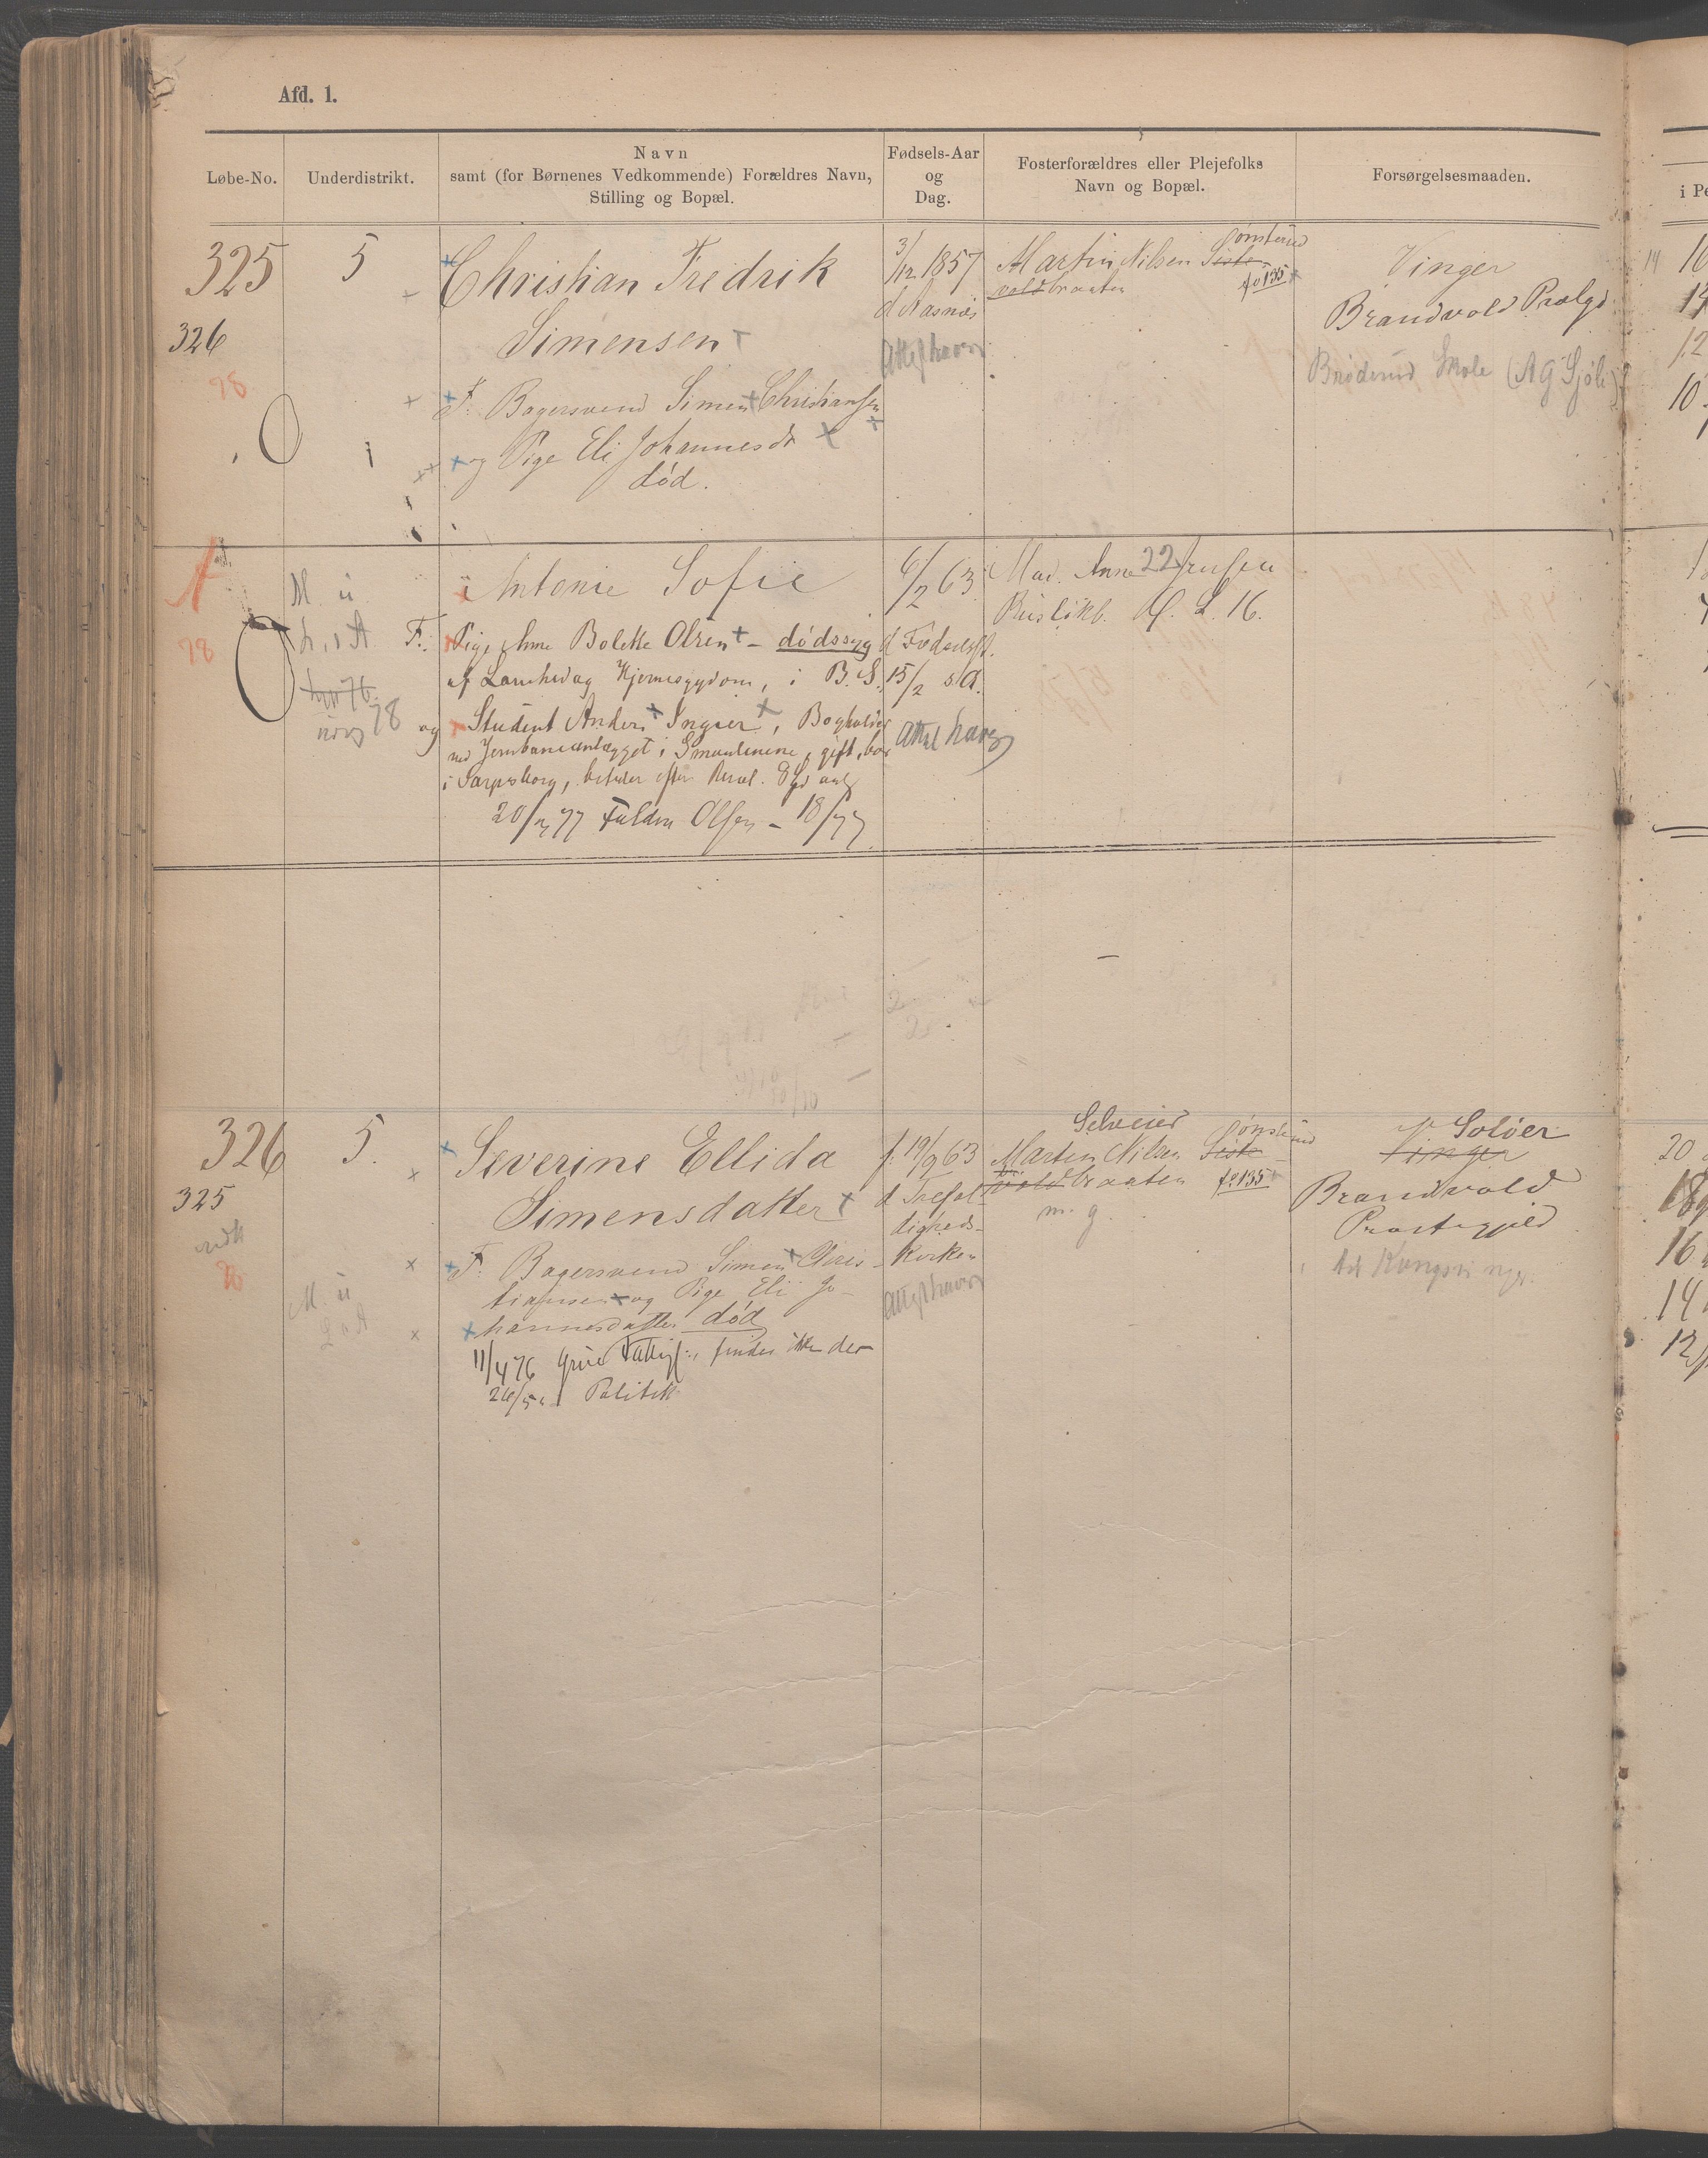 Afd. 1.
Løbe-No.
Underdistrikt.
Navn
samt (for Børnenes Vedkommende) Forældres Navn,
Stilling og Bopæl.
Fødsels-Aar
og
Dag.
Fosterforældres eller Plejefolks
Navn og Bopæl.
Forsørgelsesmaaden.
i Pe
325
326
28
5
Christian Fredrik
Simensen
F: Bagersvend Simen Christiansen
og Pige Eli Johannesdr
død.
3/12 1857
d Aasnæs
Attest haves
Martin Nilsen Siste
ønsterud
voldbraaten
fo 135
Vinger
Brandvold Prælgd
Brøderud Skole (AG Sjøli)
28
M ü
Antonie Sofie
F: Pige Anne Bolette Olsen - dødssyg
af Hjernesygdom, i B. S.
og Student Anders Ingier, Bogholder
ved Jernbaneanlægget i Smaalenene, gift, bor
i Sarpsborg, betaler efter
20/4 77 Olsen - 18/77
6/2 63
d Fødselsst.
15/2 s. A.
Attest haves
Mad. Anne
22
16.
326
325
28
5.
M ü
Severine Ellida
Simensdatter
F: Bagersvend Simen Chris-
tiansen og Pige Eli Jo-
hannesdatter død
11/4 76 Grue findes ikke der
26/5 Politik
f. 19/9 63
d Trefol-
digheds-
kirken
Attest haves
Selveier
Martin Nilsen Siste
ønsterud
voldbraaten
fo 135
m. g.
Soløer
Vinger
Brandvold
Præstegjeld
Kongsvinger.